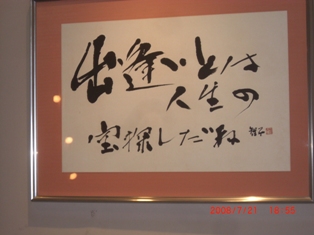 出逢いとは
人生の
宝探しだね
2008/7/21 18:55